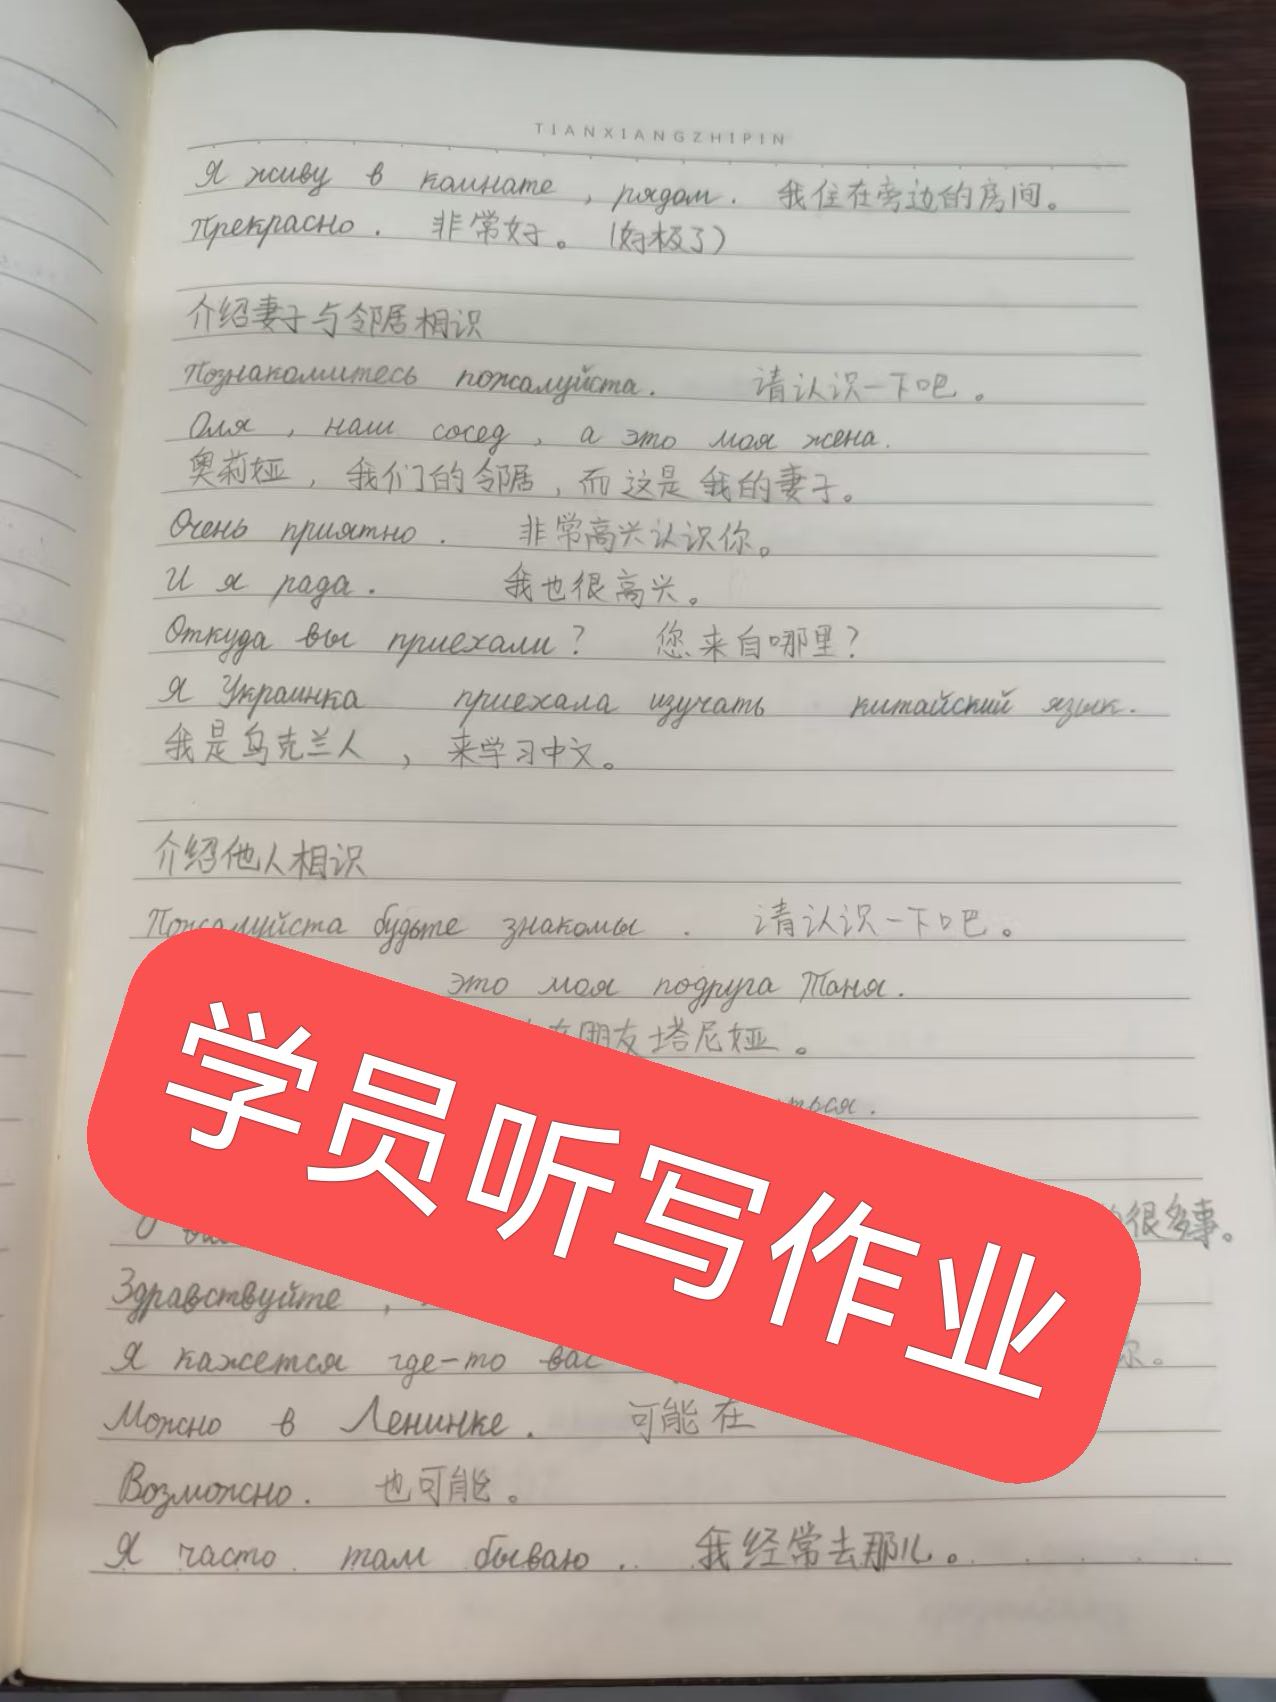 TIANXIANGZHIPIN
Я живу в комнате, рядом. 我住在旁边的房间。
Прекрасно. 非常好。(好极了)
介绍妻子与邻居相识
Познакомитесь пожалуйста. 请认识一下吧。
Оля, наш сосед, а это моя жена.
奥莉娅,我们的邻居,而这是我的妻子。
Очень приятно. 非常高兴认识你。
И я рада. 我也很高兴。
Откуда вы приехали? 您来自哪里?
Я Украинка приехала изучать китайский язык.
我是乌克兰人,来学习中文。
介绍他人相识
Пожалуйста будьте знакомы. 请认识一下吧。
это моя подруга Таня.
朋友塔尼娅。
很多事。
Здравствуйте,
Я кажется где-то вас
Можно в Ленинке. 可能在
Возможно. 也可能。
Я часто там бываю.. 我经常去那儿。
学员听写作业